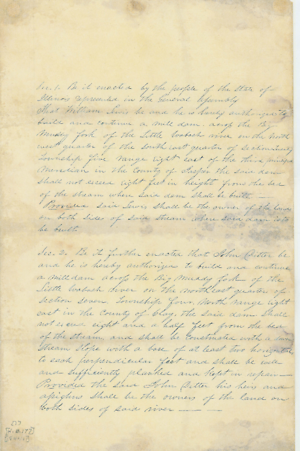 Sec. 1. Be it enacted by the people of the State of
Illinois represented in the General Assembly
That William Lewis be and he is hereby authorized to
build and continue a mill dam across the big
Muddy fork of the Little Wabash river on the north
west quarter of the south east quarter of section
Township five range eight east of the third principal
Meridian in the County of the said dam
shall not exceed eight feet in height from the bed
of the stream when said dam shall be built
Provided said Lewis shall be the owner of the land
on both sides of said stream where said dam is to
be built
Sec. 2. Be it further enacted that John Ritter be
and he is hereby authorized to build and continue
a mill dam across the big Muddy fork of the
Little Wabash River on the north east quarter of
Section Seven Township four North, range eight
east in the County of Clay, the said dam shall
not exceed eight and a half feet from the bed
of the Stream, and shall be constructed with a
Slope with a base of at least two
to each perpendicular foot and shall be well
and sufficiently planked and kept in repair
Provided the said John Ritter his heirs and
assigns shall be the owners of the lands on
both sides of said river